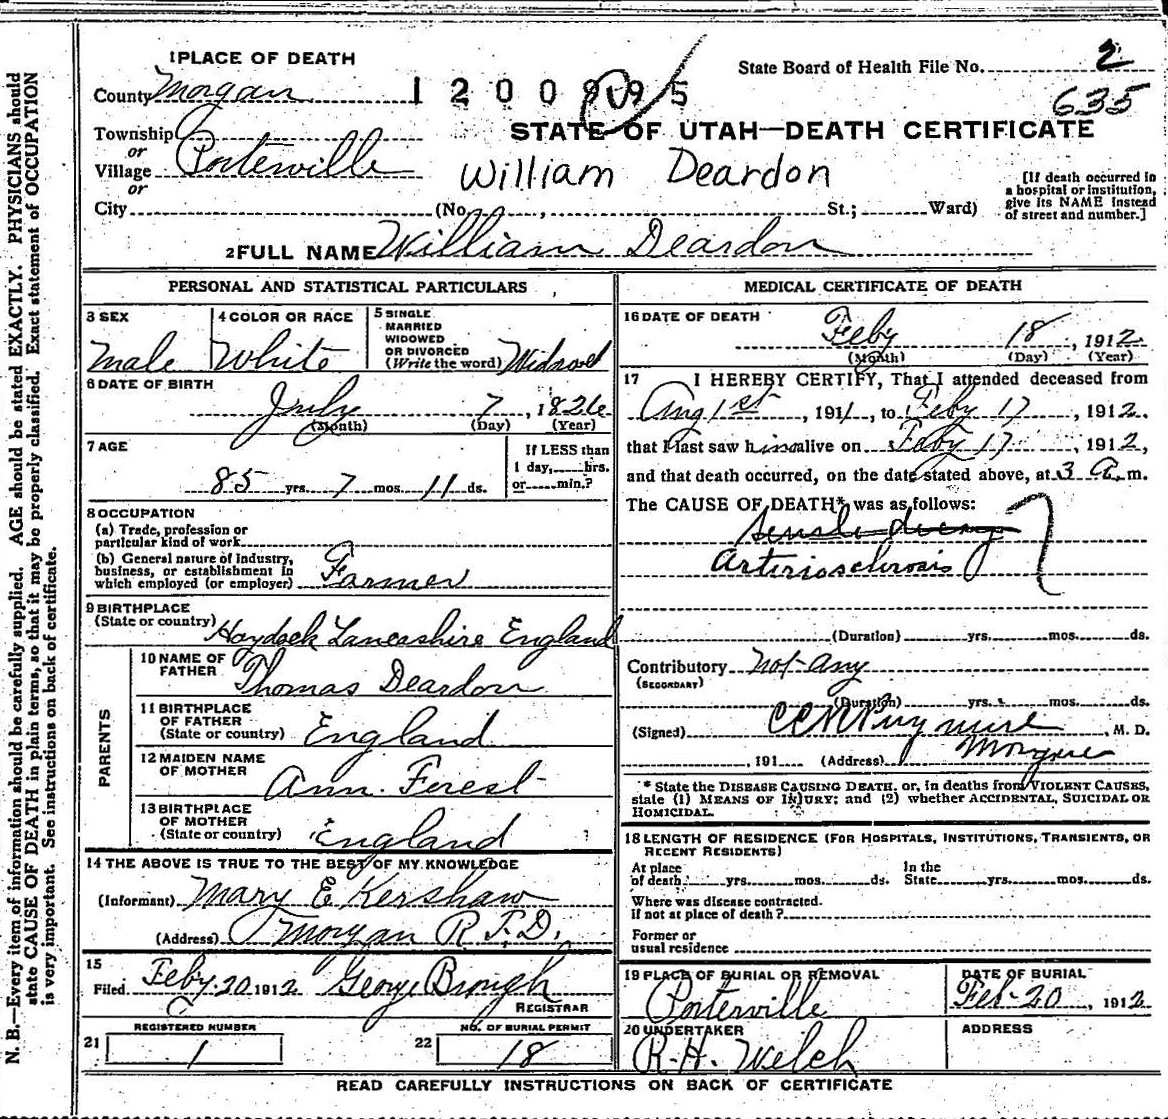 1 PLACE OF DEATH
County Morgan
State Board of Health File No. 2
635
STATE OF UTAH—DEATH CERTIFICATE
Township
or
Village Porterville
or
William Deardon
City (No. , St.; Ward)
[If death occurred in
a hospital or institution,
give its NAME instead
of street and number.]
2 FULL NAME William Deardon
PERSONAL AND STATISTICAL PARTICULARS
3 SEX
Male
4 COLOR OR RACE
White
5 SINGLE
MARRIED
WIDOWED
OR DIVORCED
(Write the word) Widowed
6 DATE OF BIRTH
July 7, 1826
(Month) (Day) (Year)
7 AGE
85 yrs. 7 mos. 11 ds.
If LESS than
1 day, hrs.
or min.?
8 OCCUPATION
(a) Trade, profession or
particular kind of work
(b) General nature of industry,
business, or establishment in
which employed (or employer) Farmer
9 BIRTHPLACE
(State or country) Haydock Lancashire England
PARENTS
10 NAME OF
FATHER Thomas Deardon
11 BIRTHPLACE
OF FATHER
(State or country) England
12 MAIDEN NAME
OF MOTHER Ann Forest
13 BIRTHPLACE
OF MOTHER
(State or country) England
14 THE ABOVE IS TRUE TO THE BEST OF MY KNOWLEDGE
(Informant) Mary E Kershaw
(Address) Morgan R.F.D.
15
Filed Feby. 20 1912 George Brough
REGISTRAR
REGISTERED NUMBER
21 1
NO. OF BURIAL PERMIT
22 18
MEDICAL CERTIFICATE OF DEATH
16 DATE OF DEATH
Feby 18, 1912
(Month) (Day) (Year)
17 I HEREBY CERTIFY, That I attended deceased from
Aug 1st, 1911, to Feby 17, 1912.
that I last saw him alive on Feby 17, 1912,
and that death occurred, on the date stated above, at 3 A.m.
The CAUSE OF DEATH* was as follows:
Arteriosclerosis
(Duration) yrs. mos. ds.
Contributory not any
(SECONDARY)
(Duration) yrs. mos. ds.
(Signed) M. D.
, 191 (Address)
* State the DISEASE CAUSING DEATH, or, in deaths from VIOLENT CAUSES,
state (1) MEANS OF INJURY; and (2) whether ACCIDENTAL, SUICIDAL OR
HOMICIDAL.
18 LENGTH OF RESIDENCE (FOR HOSPITALS, INSTITUTIONS, TRANSIENTS, OR
RECENT RESIDENTS)
At place
of death yrs. mos. ds.
In the
State yrs. mos. ds.
Where was disease contracted.
If not at place of death?
Former or
usual residence
19 PLACE OF BURIAL OR REMOVAL
Porterville
DATE OF BURIAL
Feb-20, 1912
20 UNDERTAKER
R. H. Welch
ADDRESS
READ CAREFULLY INSTRUCTIONS ON BACK OF CERTIFICATE
N. B.—Every item of information should be carefully supplied. AGE should be stated EXACTLY. PHYSICIANS should
state CAUSE OF DEATH in plain terms, so that it may be properly classified. Exact statement of OCCUPATION
is very important. See instructions on back of certificate.